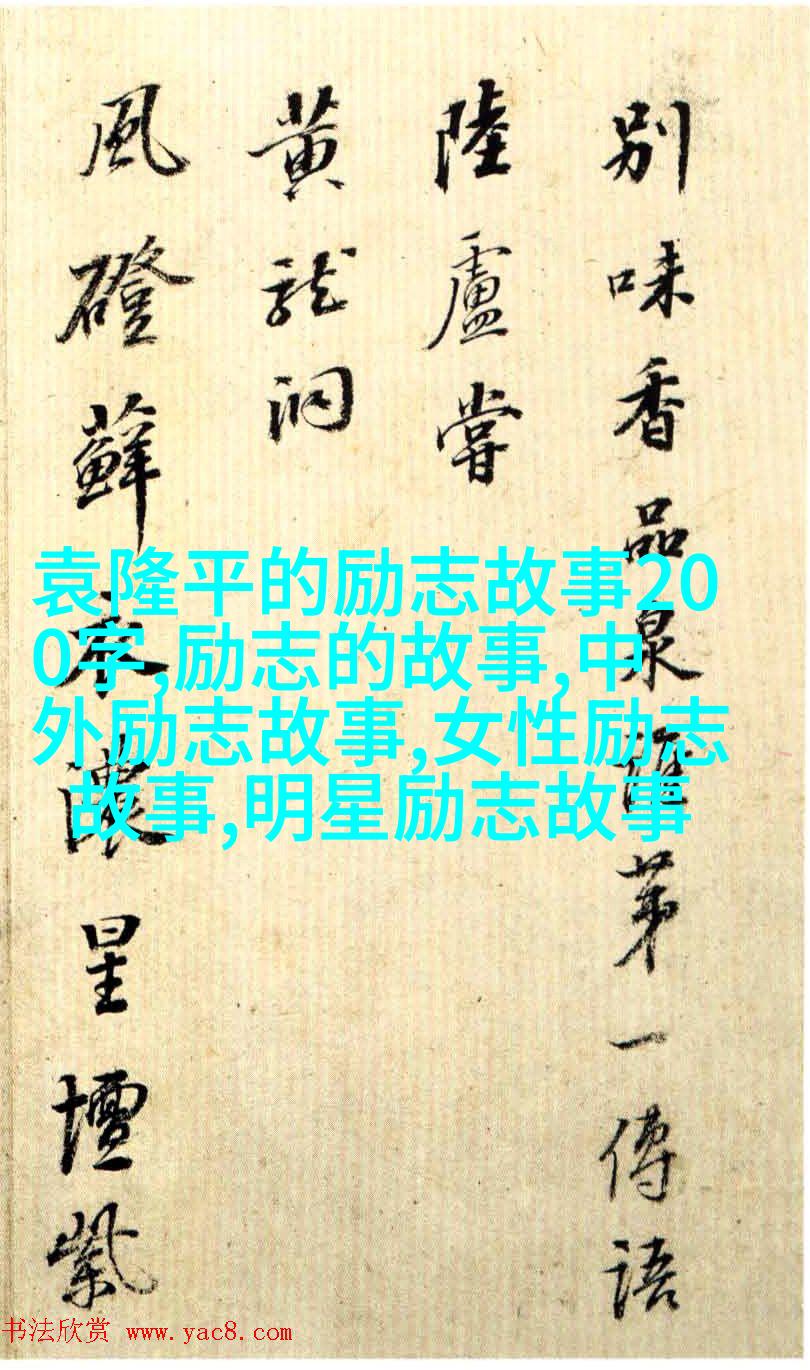 别味香品泉第一傳語
陸盧嘗
黄龍洞
風磴蘚衣濃星壇紫
袁隆平的励志故事20
0字,励志的故事,中
外励志故事,女性励志
故事,明星励志故事
书法欣赏 www.yac8.com